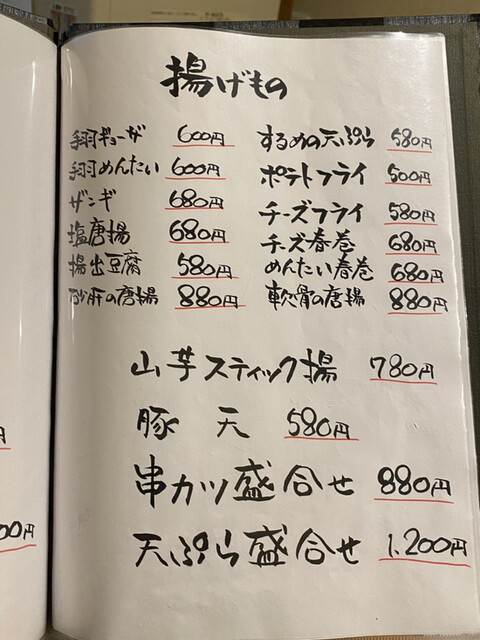 揚げもの
手羽ギョーザ 600円
手羽めんたい 600円
ザンギ 680円
塩唐揚 680円
揚出豆腐 580円
砂肝の唐揚 880円
するめの天ぷら 580円
ポテトフライ 500円
チーズフライ 580円
チーズ春巻 680円
めんたい春巻 680円
軟骨の唐揚 880円
山芋スティック揚 780円
豚天 580円
串カツ盛合せ 880円
天ぷら盛合せ 1,200円
円
00円